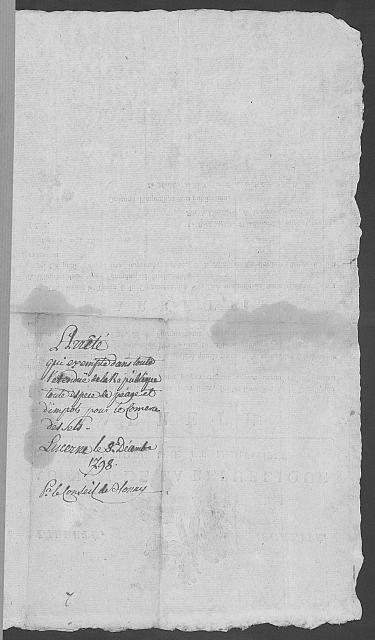 L'Arrêté
qui exempte dans toute
l'étendue de la République
toute espece de peage et
d'impots pour le Comerce
des Sels.
Lucerne le 8.e Décembre
1798.
Pr. le Conseil de
7